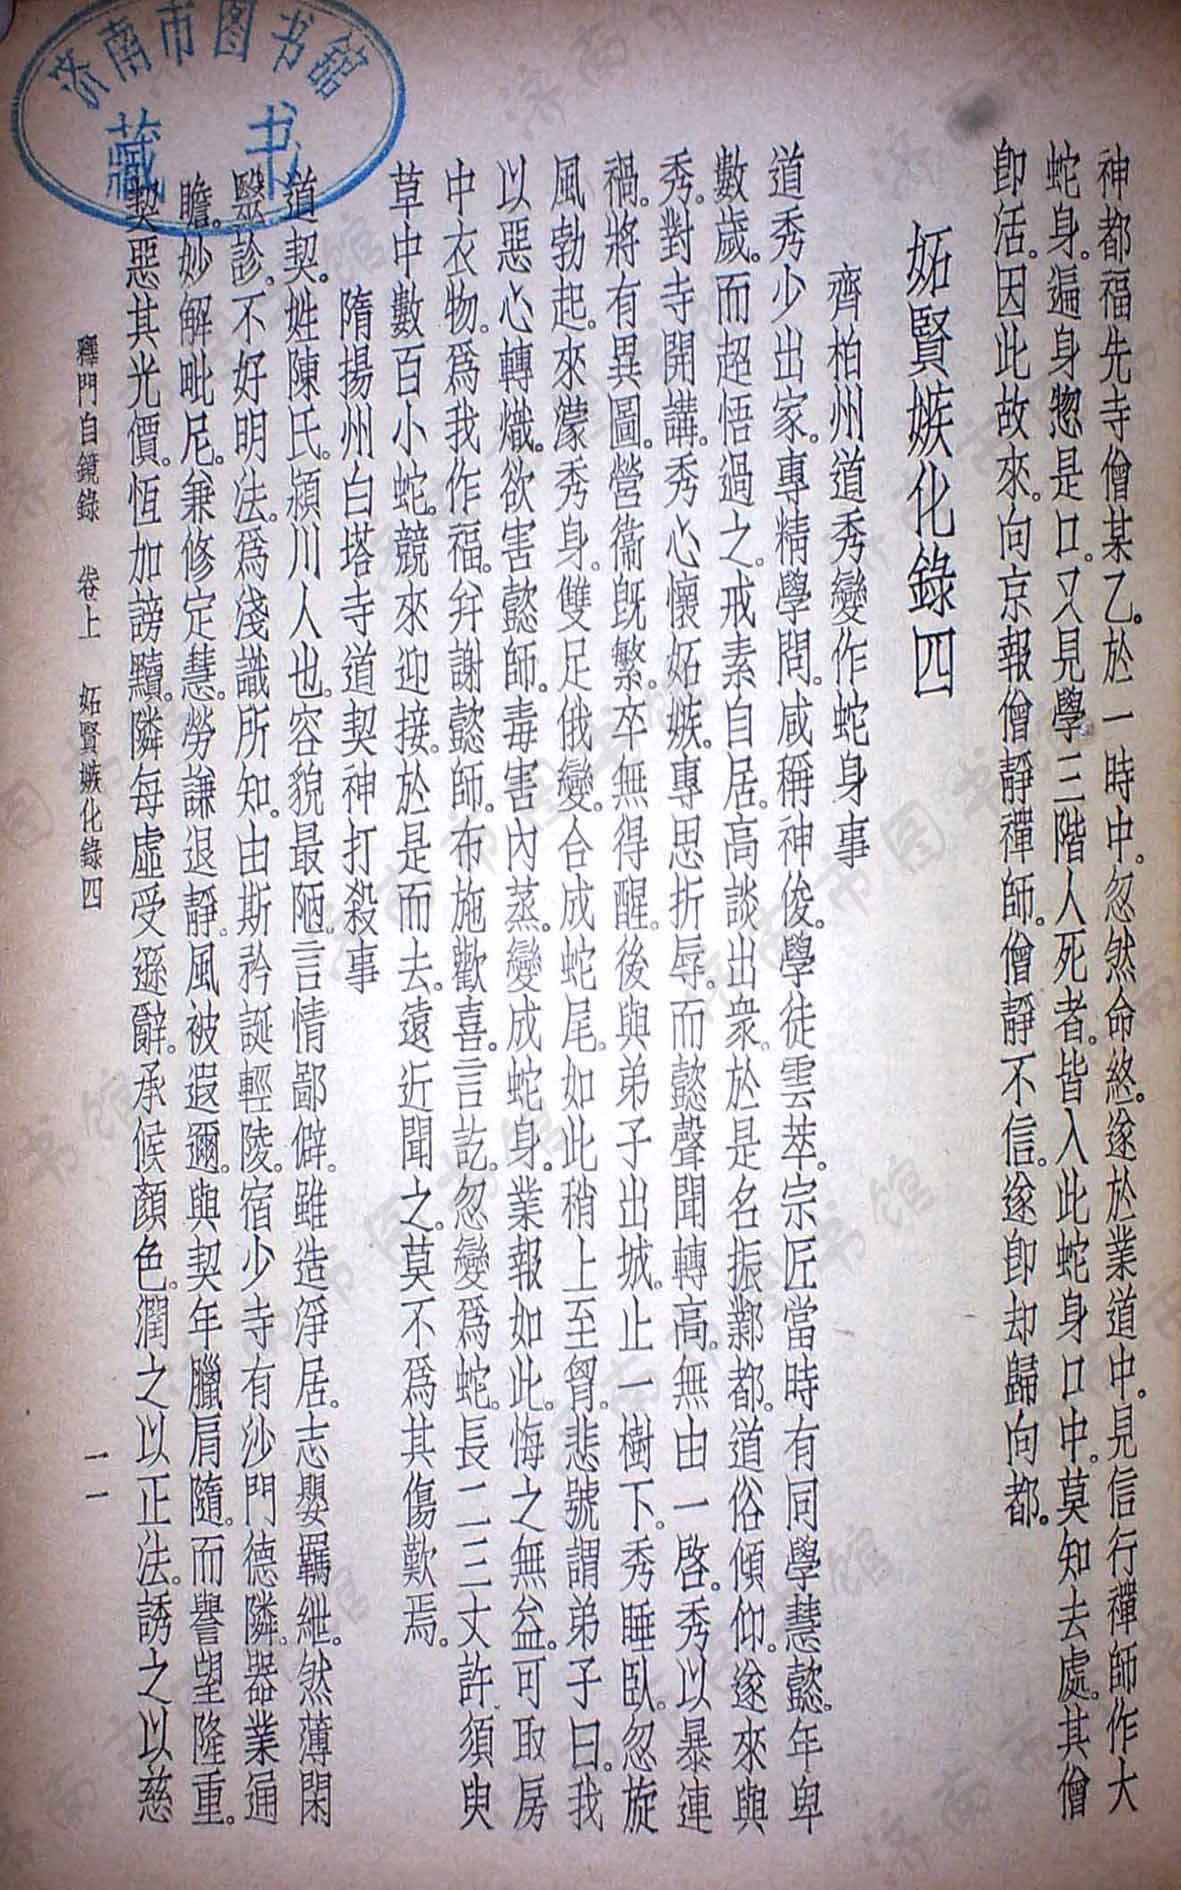 神都福先寺僧某乙。於一時中。忽然命終。遂於業道中。見信行禪師作大
蛇身。遍身惣是口。又見學三階人死者。皆入此蛇身口中。莫知去處。其僧
卽活。因此故來。向京報僧靜禪師。僧靜不信。遂卽却歸向都。
妬賢嫉化錄四
齊柏州道秀變作蛇身事
道秀少出家。專精學問。咸稱神俊。學徒雲萃。宗匠當時有同學慧懿。年卑
數歲。而超悟過之。戒素自居。高談出衆。於是名振鄴都。道俗傾仰。遂來與
秀。對寺開講。秀心懷妬嫉。專思折辱。而懿聲聞轉高。無由一啓。秀以暴連
禍。將有異圖。營衞旣繁。卒無得醒。後與弟子出城。止一樹下。秀睡臥。忽旋
風勃起。來濛秀身。雙足俄變。合成蛇尾。如此稍上至胷。悲號謂弟子曰。我
以惡心轉熾。欲害懿師。毒害內蒸。變成蛇身。業報如此。悔之無益。可取房
中衣物。爲我作福。幷謝懿師。布施歡喜。言訖。忽變爲蛇。長二三丈許。須臾
草中數百小蛇。競來迎接。於是而去。遠近聞之。莫不爲其傷歎焉。
隋揚州白塔寺道契神打殺事
道契。姓陳氏。潁川人也。容貌最陋。言情鄙僻。雖造淨居。志嬰羈紲。然薄閑
毉診。不好明法。爲淺識所知。由斯矜誕輕陵。宿少寺有沙門德隣。器業通
瞻。妙解毗尼。兼修定慧。勞謙退靜。風被遐邇。與契年臘肩隨。而譽望隆重。
契惡其光價。恆加謗黷。隣每虛受遜辭。承候顏色。潤之以正法。誘之以慈
釋門自鏡錄 卷上 妬賢嫉化錄四 一一
济南市图书馆
藏书